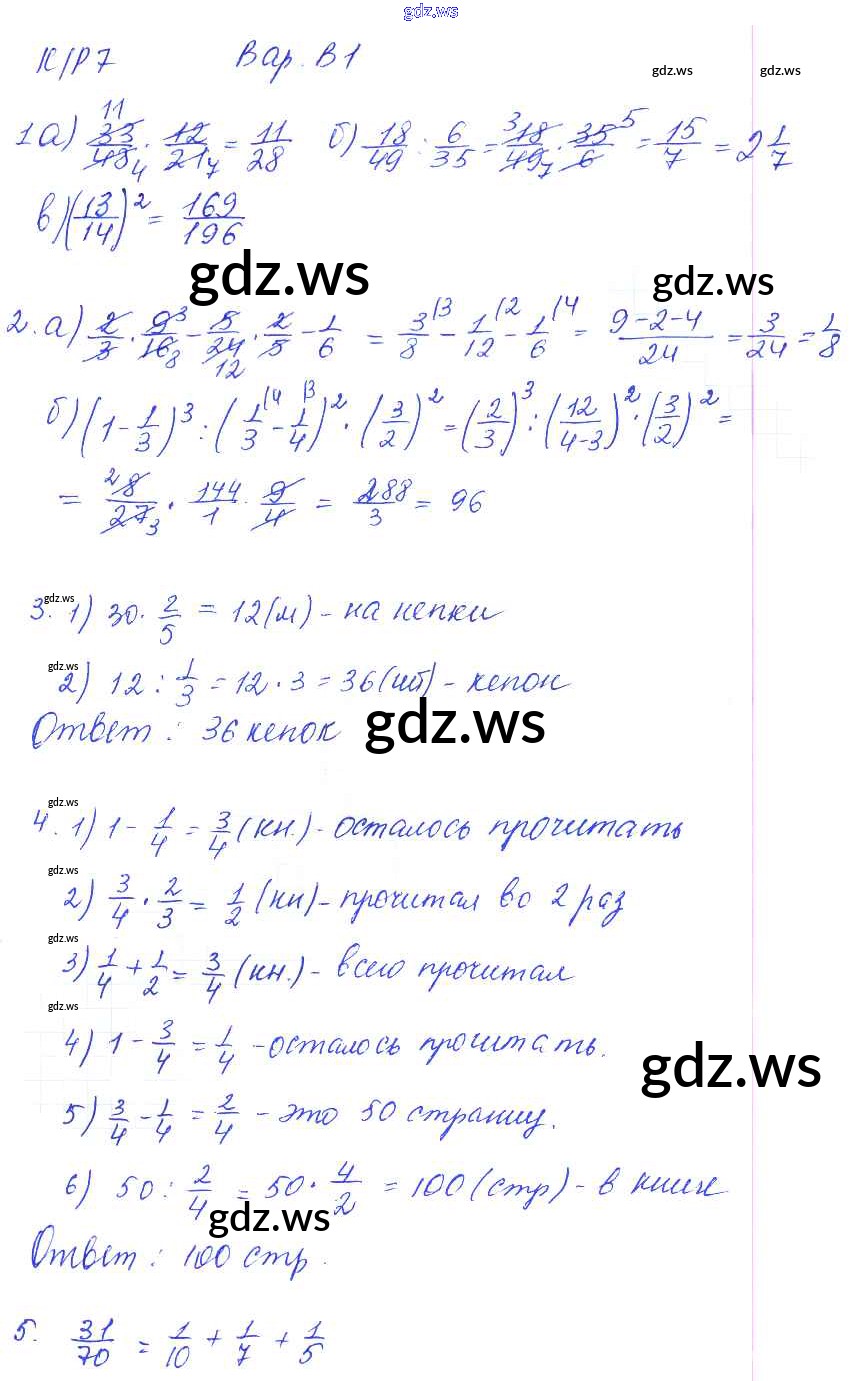 gdz.ws
К/Р 7 Вар. В1
gdz.ws gdz.ws
1 а) 33/48 · 12/21 = 11/28 б) 18/49 : 6/35 = 18/49 · 35/6 = 15/7 = 2 1/7
в) (13/14)² = 169/196
gdz.ws gdz.ws
2. а) 2/3 · 9/16 - 5/24 · 2/5 - 1/6 = 3/8 - 1/12 - 1/6 = 9-2-4/24 = 3/24 = 1/8
б) (1 - 1/3)³ : (1/3 - 1/4)² · (3/2)² = (2/3)³ : (12/4-3)² · (3/2)² =
= 8/27 · 144/1 · 9/4 = 288/3 = 96
gdz.ws
3. 1) 30 · 2/5 = 12 (м) - на кепки
gdz.ws
2) 12 : 1/3 = 12 · 3 = 36 (шт) - кепок
Ответ: 36 кепок gdz.ws
gdz.ws
4. 1) 1 - 1/4 = 3/4 (кн.) - осталось прочитать
gdz.ws
2) 3/4 · 2/3 = 1/2 (кн) - прочитал во 2 раз
gdz.ws
3) 1/4 + 1/2 = 3/4 (кн.) - всего прочитал
gdz.ws
4) 1 - 3/4 = 1/4 - осталось прочитать.
gdz.ws
5) 3/4 - 1/4 = 2/4 - это 50 страниц.
6) 50 : 2/4 = 50 · 4/2 = 100 (стр) - в книге
gdz.ws
Ответ: 100 стр.
5. 31/70 = 1/10 + 1/7 + 1/5